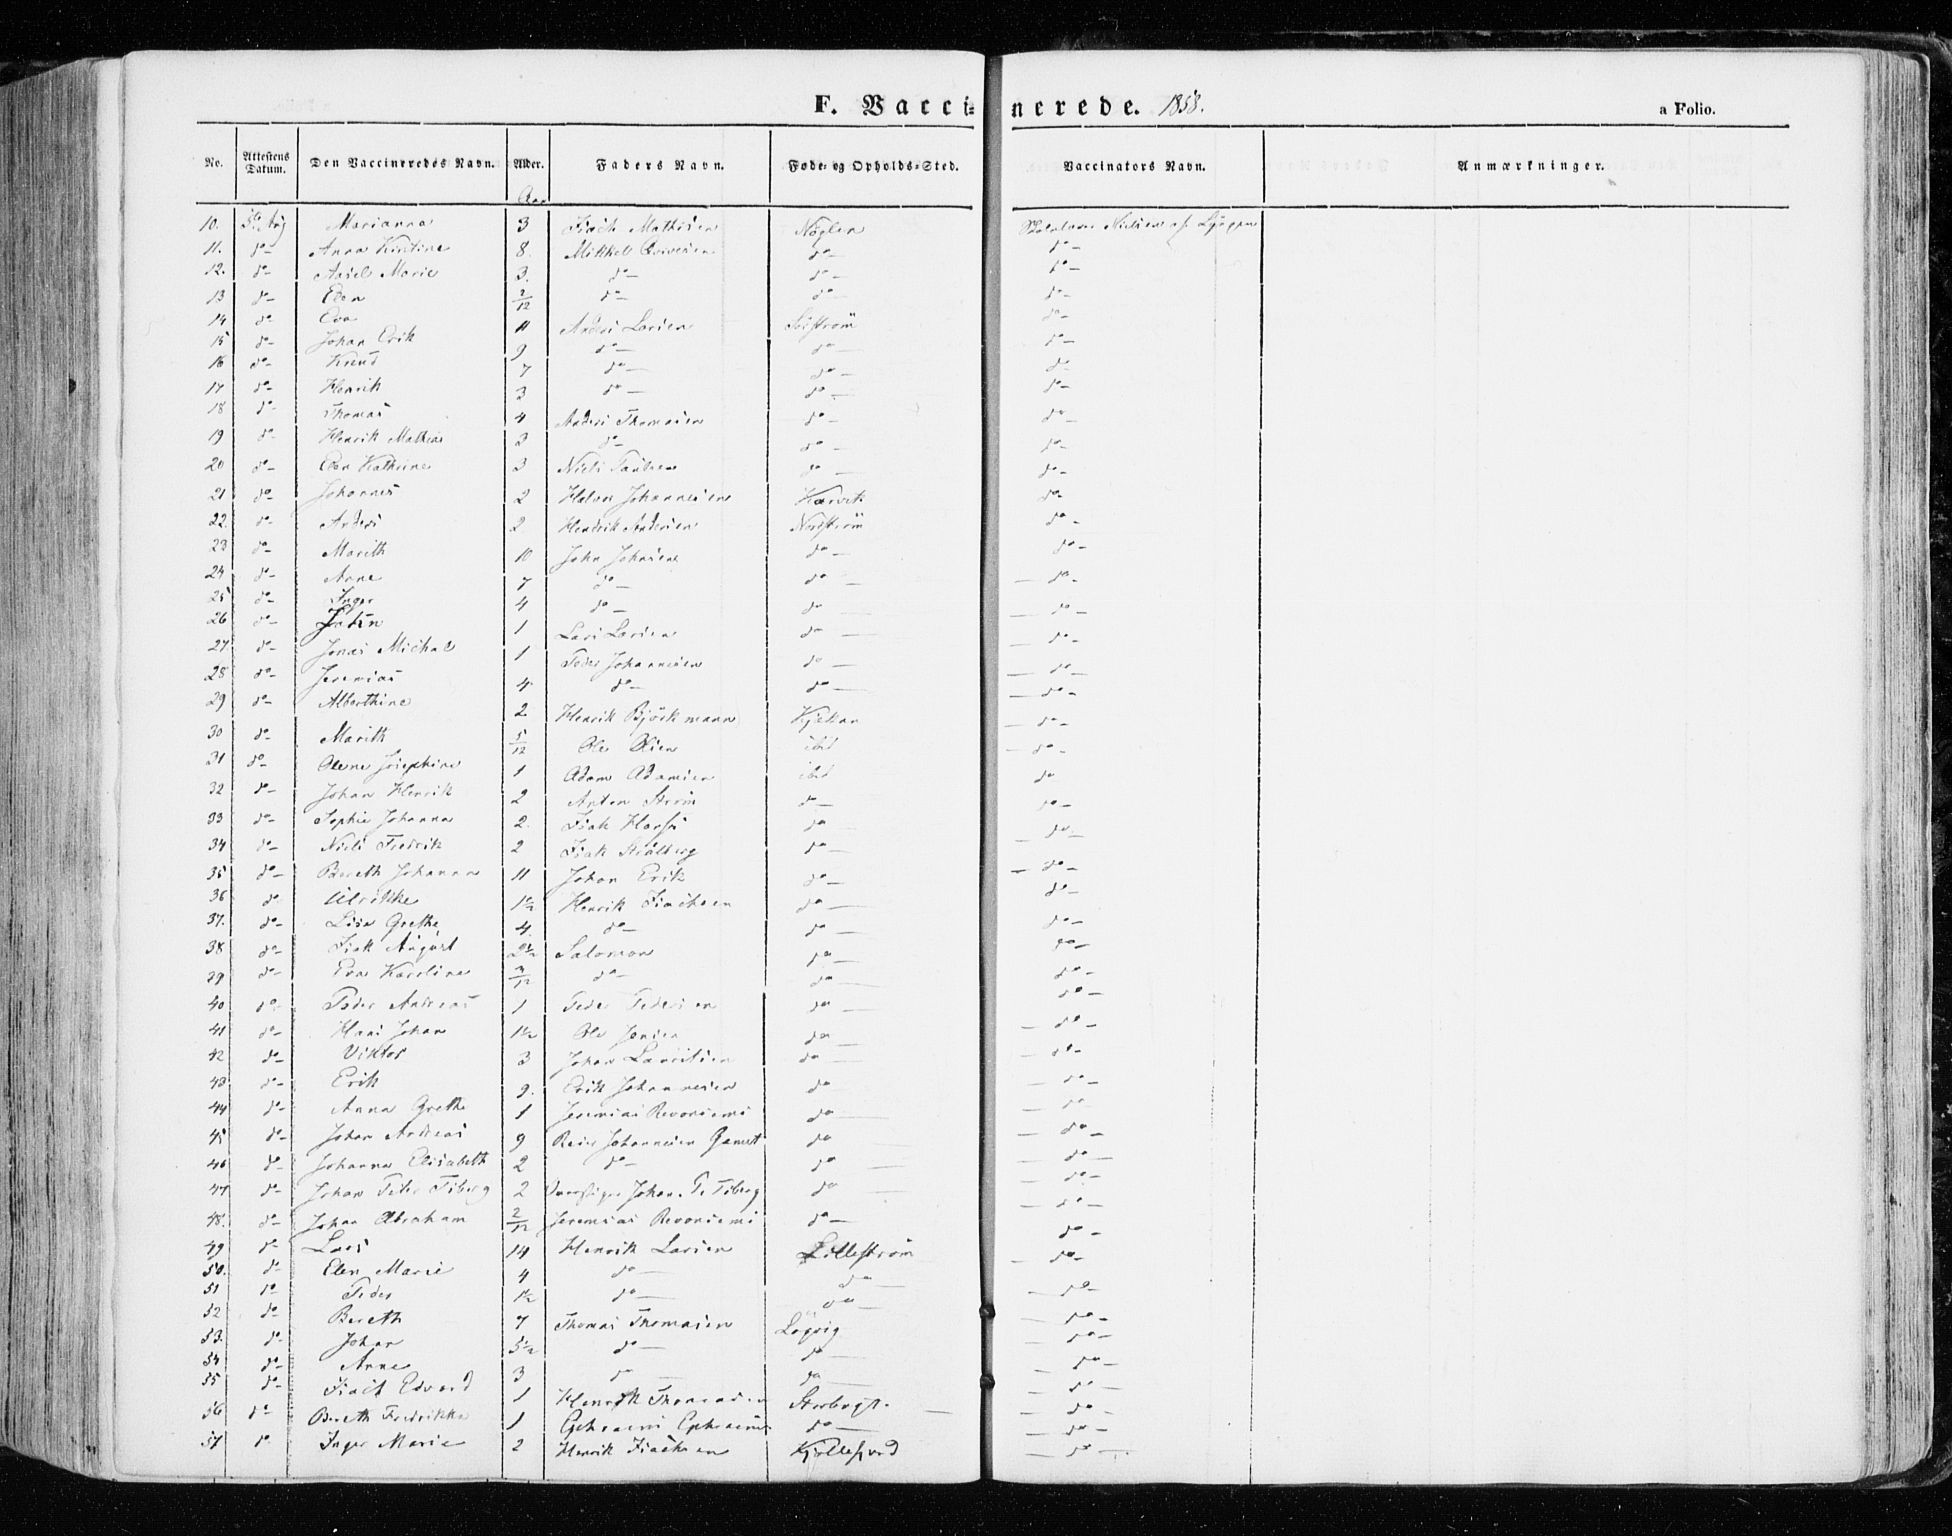 F. Vaccinerede. 1858. a Folio.
No. Attestens Datum. Den Vaccineredes Navn. Alder. Faders Navn. Føde- og Opholds-Sted. Vaccinators Navn. Anmærkninger.
Aar
10. Aug Marianna 3 Isach Mathisen Nielsen af Lyngen
11. do- Anna Kirstine 8. Mikkel do- do-
12. do- Marie 3. do- do- do-
13 do- Elen 2/12 do- do- do-
14 do- Eva 11 Anders Larsen do-
15 do- Johan Erik 9 do- do- do-
16 do- Knud 7 do- do- do-
17 do- Henrik 3 do- do- do-
18 do- Thomas 4 Anders Thomasen do- do-
19 do- Henrik Mathias do- do- do-
20 do- Elen Kathrine 3 Niels do- do-
21 do- Johannes 2 Halvor Johannesen do-
22. do- Anders 2 Hendrik Andersen Nordstrøm do-
23 do- Marith 10 John Johnsen do- do-
24 do- Anne 7 do- do- do-
25 do- Inger 4 do- do- do-
26 do- 1 Lars Larsen do- do-
27 do- Jonas Michal 1 Peder Johannesen do- do-
28 do- Jeremias 4 do- do- do-
29 do- Alberthine 2 Henrik Björkmann Kjækan do-
30 do- Marith 5/12 Ole Olsen ibd do-
31 do- Olene Josephine 1 Adam Adamsen ibd do
32 do- Johan Henrik 2 Anton Strøm do- do-
33 do- Sophie Johanna 2. Isak do do-
34 do- Niels Fredrik 2 Isak Stålberg do- do-
35 do- Bereth Johanna 11 Johan Erik do- do-
36 do- Ulrikke 1½ Henrik Isachsen do- do-
37. do- Lisa Grethe 4. do- do- do-
38 do- Isak August 2½ Salomon do- do-
39 do- Eva Karoline do- do- do-
40 do- Peder Andreas 1 Peder Pedersen do- do-
41 do- Hans Johan 1½ Ole Jensen do- do-
42 do- Viktor 3 Johan Lauritsen do- do-
43 do- Erik 9. Erik Johannesen do do-
44 do- Anna Grethe 1 Jeremias do- do-
45 do- Johan Andreas 9 Johannesen do do-
46 do- Johanna Elisabeth 2 do- do- do-
47 do- Johan Peter Fiberg 2 Johan P. Fiberg do- do-
48. do- Johan Abraham 2/12 Jeremias do- do-
49 do- Lars 14 Henrik Larsen Lillestrøm do-
50. do- Elen Marie 4 do- do- do-
51 do Peder 1½ do- do- do-
52 do- Bereth 7 Thomas Thomasen do-
53. do- Johan 5½ do- do- do-
54 do- Anne 3 do- do- do-
55 do- Isach Edvard 1 Henrik Thomasen do-
56 do- Bereth Fredrikke 1 Ephraim do- do-
57 do- Inger Marie 2 Henrik Isachsen Kjøllefjord do-